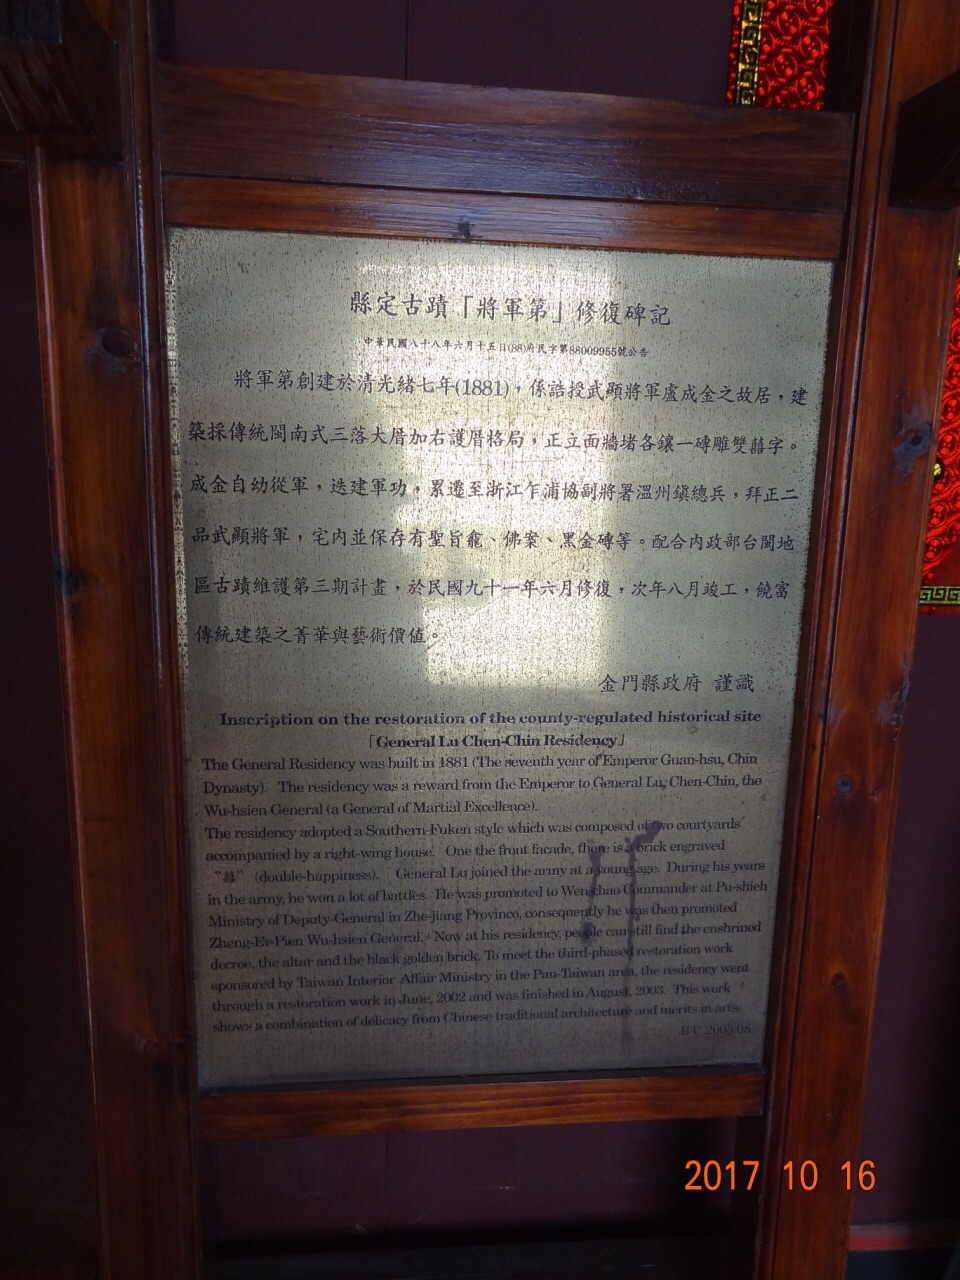 縣定古蹟「將軍第」修復碑記
中華民國八十八年六月十五日(88)府民字第88009955號公告
將軍第創建於清光緒七年(1881)，係誥授武顯將軍盧成金之故居，建
築採傳統閩南式三落大厝加右護厝格局，正立面牆堵各鑲一磚雕雙囍字。
成金自幼從軍，迭建軍功，累遷至浙江乍浦協副將署溫州鎮總兵，拜正二
品武顯將軍，宅內並保存有聖旨龕、佛案、黑金磚等。配合內政部台閩地
區古蹟維護第三期計畫，於民國九十一年六月修復，次年八月竣工，饒富
傳統建築之菁華與藝術價值。
金門縣政府 謹識
Inscription on the restoration of the county-regulated historical site
「General Lu Chen-Chin Residency」
The General Residency was built in 1881 (The seventh year of Emperor Guan-hsu, Chin
Dynasty). The residency was a reward from the Emperor to General Lu, Chen-Chin, the
Wu-hsien General (a General of Martial Excellence).
The residency adopted a Southern-Fuken style which was composed of two courtyards
accompanied by a right-wing house. One the front facade, fhere is a brick engraved
“囍” (double-happiness). General Lu joined the army at a young age. During his years
in the army, he won a lot of battles. He was promoted to Wen-chao Commander at Pu-shieh
Ministry of Deputy-General in Zhe-jiang Provinco, consequently he was then promoted
Zheng-Er-Pien Wu-hsien General. Now at his residency, people can still find the enshrined
decree, the altar and the black golden brick. To meet the third-phased restoration work
sponsored by Taiwan Interior Affair Ministry in the Pan-Taiwan area, the residency went
through a restoration work in June, 2002 and was finished in August, 2003. This work
shows a combination of delicacy from Chinese traditional architecture and merits in arts.
B.C 2003.08
2017 10 16